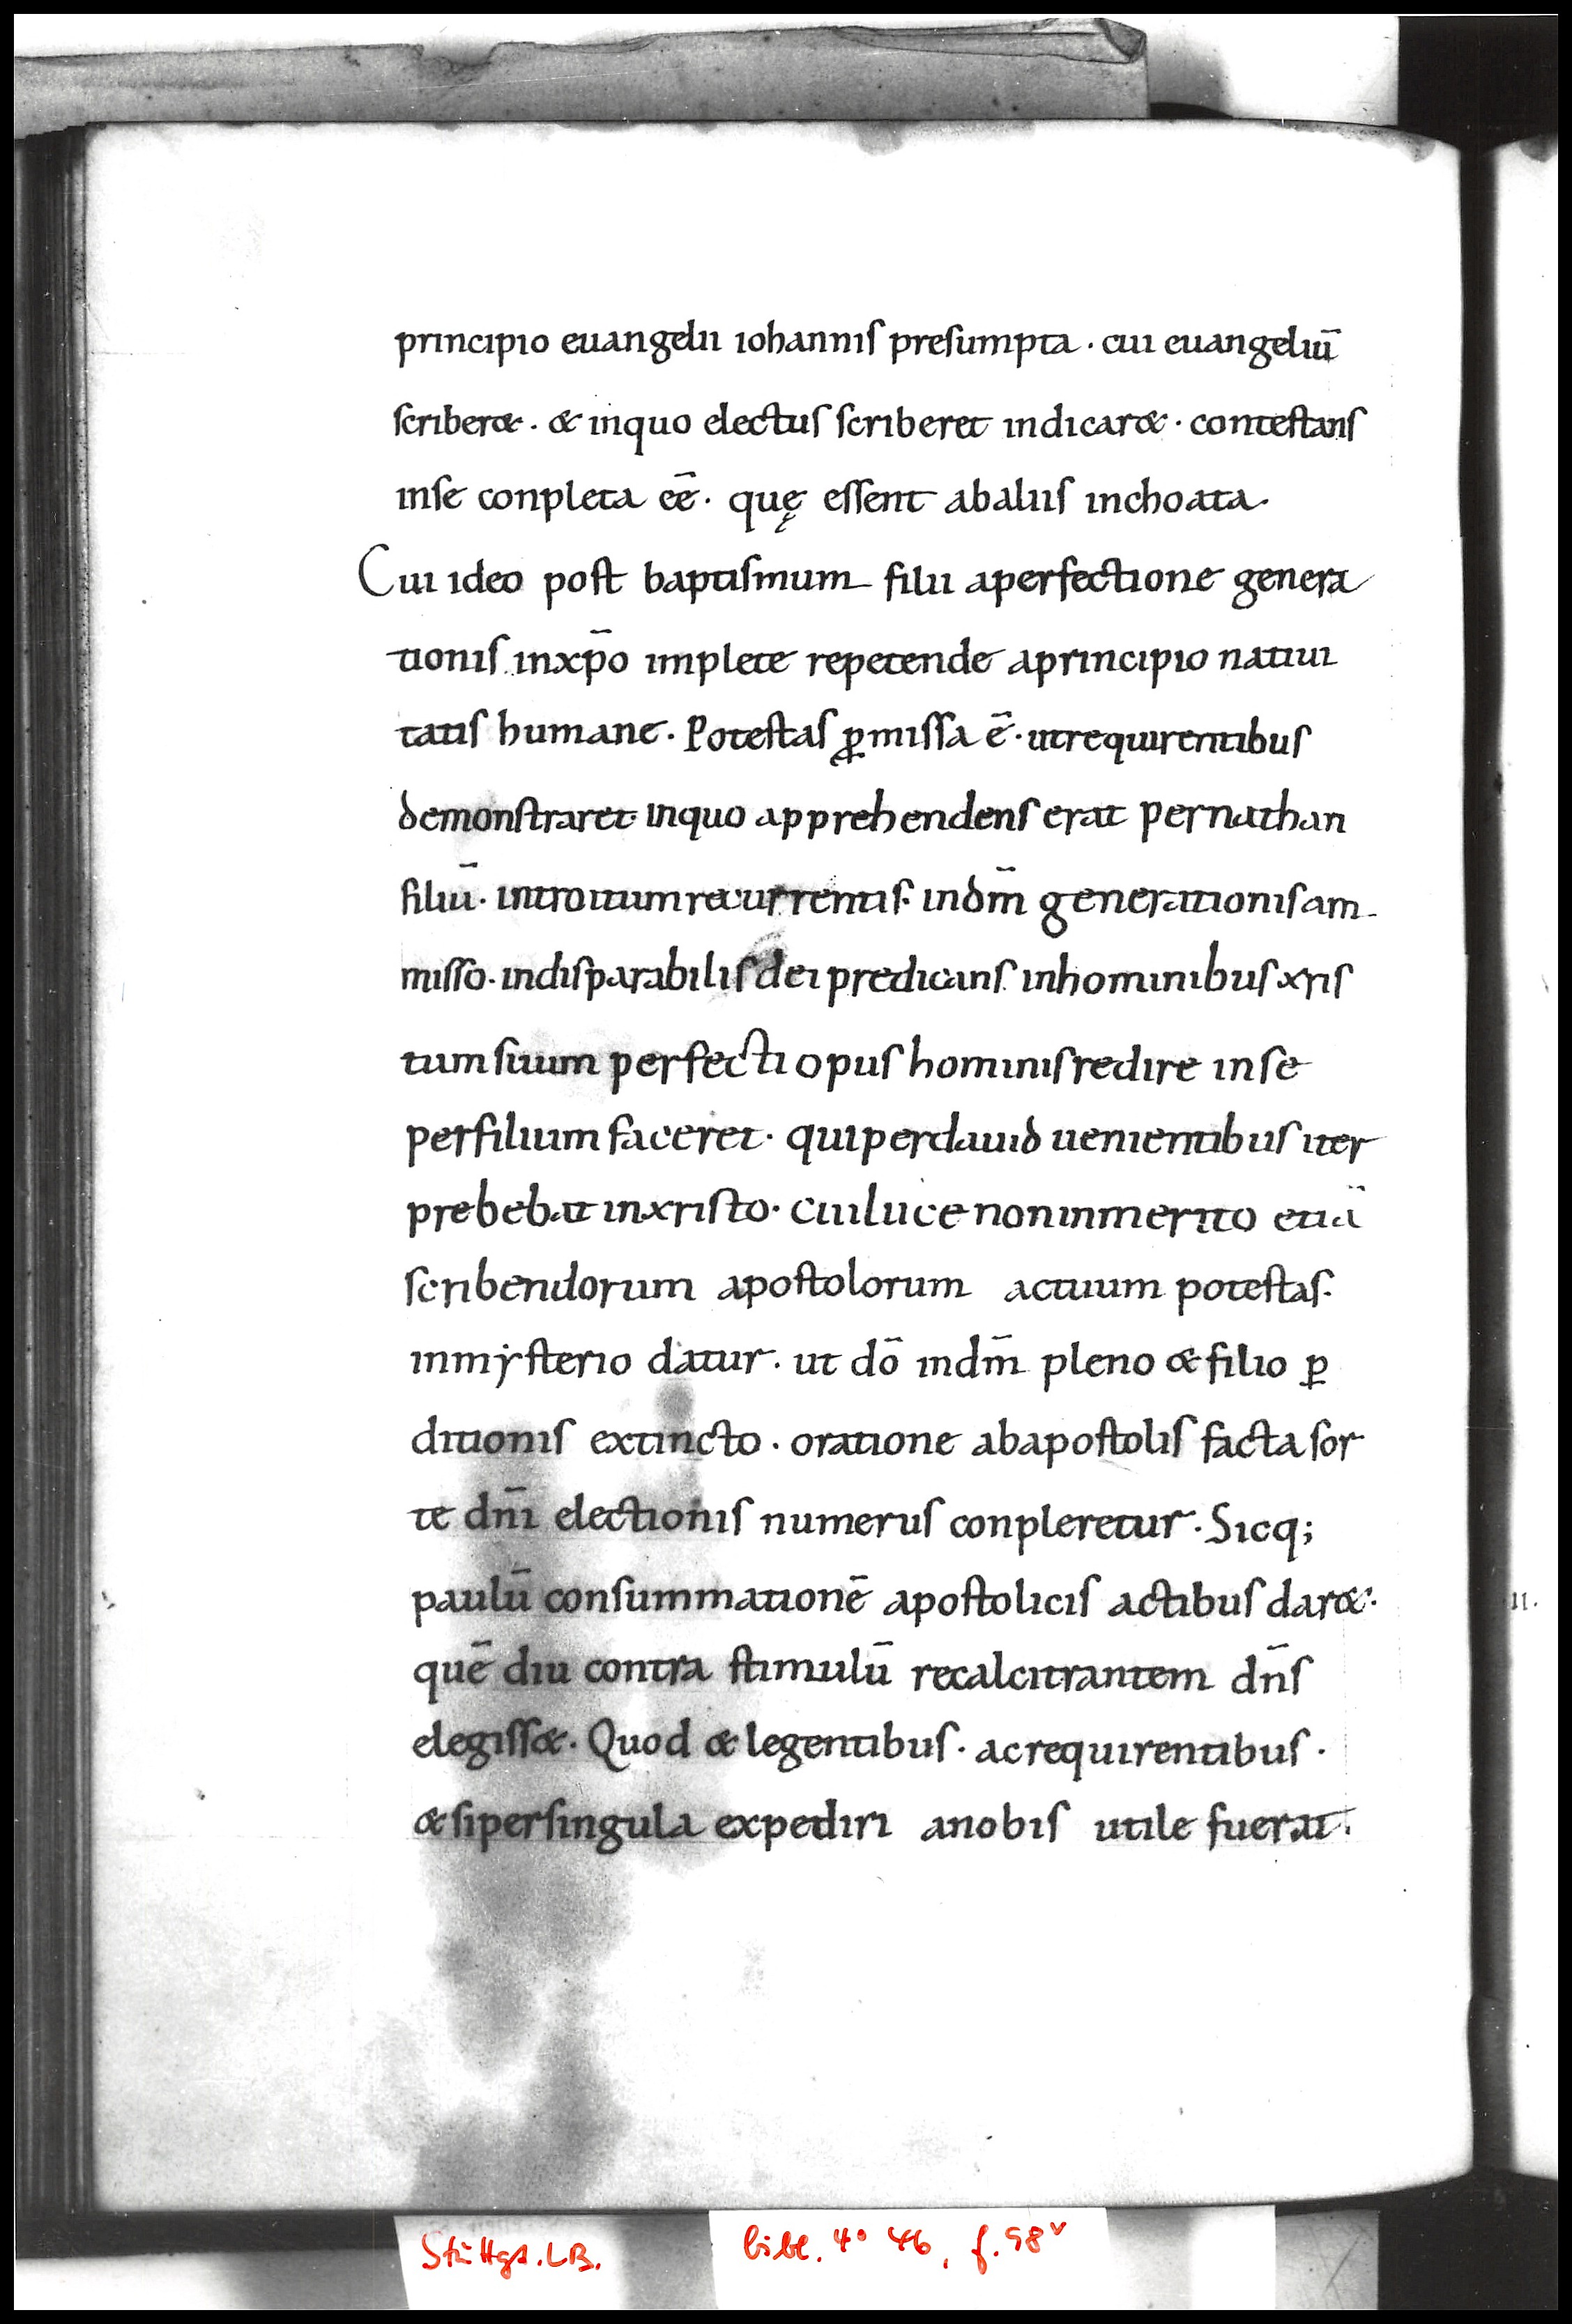 principio euangelii iohannis presumpta · cui euangeliū
scriberet · & inquo electus scriberet indicar& · contestans
inse conpleta eē · quę essent abaliis inchoata ·
Cui ideo post baptismum filii aperfectione genera
tionis inxp̄o implete repetende aprincipio natiui
tatis humane · Potestas p̱missa ē · utrequirentibus
demonstraret · inquo apprehendens erat pernathan
filiū · introitum recurrentis · indm̄ generationis am
misso · indisparabilis dei predicans inhominibus xris
tum suum perfecti opus hominis redire inse
perfilium faceret · qui perdauid uenientibus iter
prebebat inxristo · Cui luce non inmerito etiā
scribendorum apostolorum actuum potestas ·
inmẏsterio datur · ut dō indm̄ pleno & filio ꝑ
ditionis extincto · oratione abapostolis facta sor
te dn̄i electionis numerus conpleretur · Sicq;
paulū consummationē apostolicis actibus dar& ·
quē diu contra stimulū recalcitrantem dn̄s
elegiss& · Quod & legentibus · acrequirentibus ·
& sipersingula expediri anobis utile fuerat ·
II.
Stuttgt. LB.
bibl. 4° 46, f. 98ᵛ